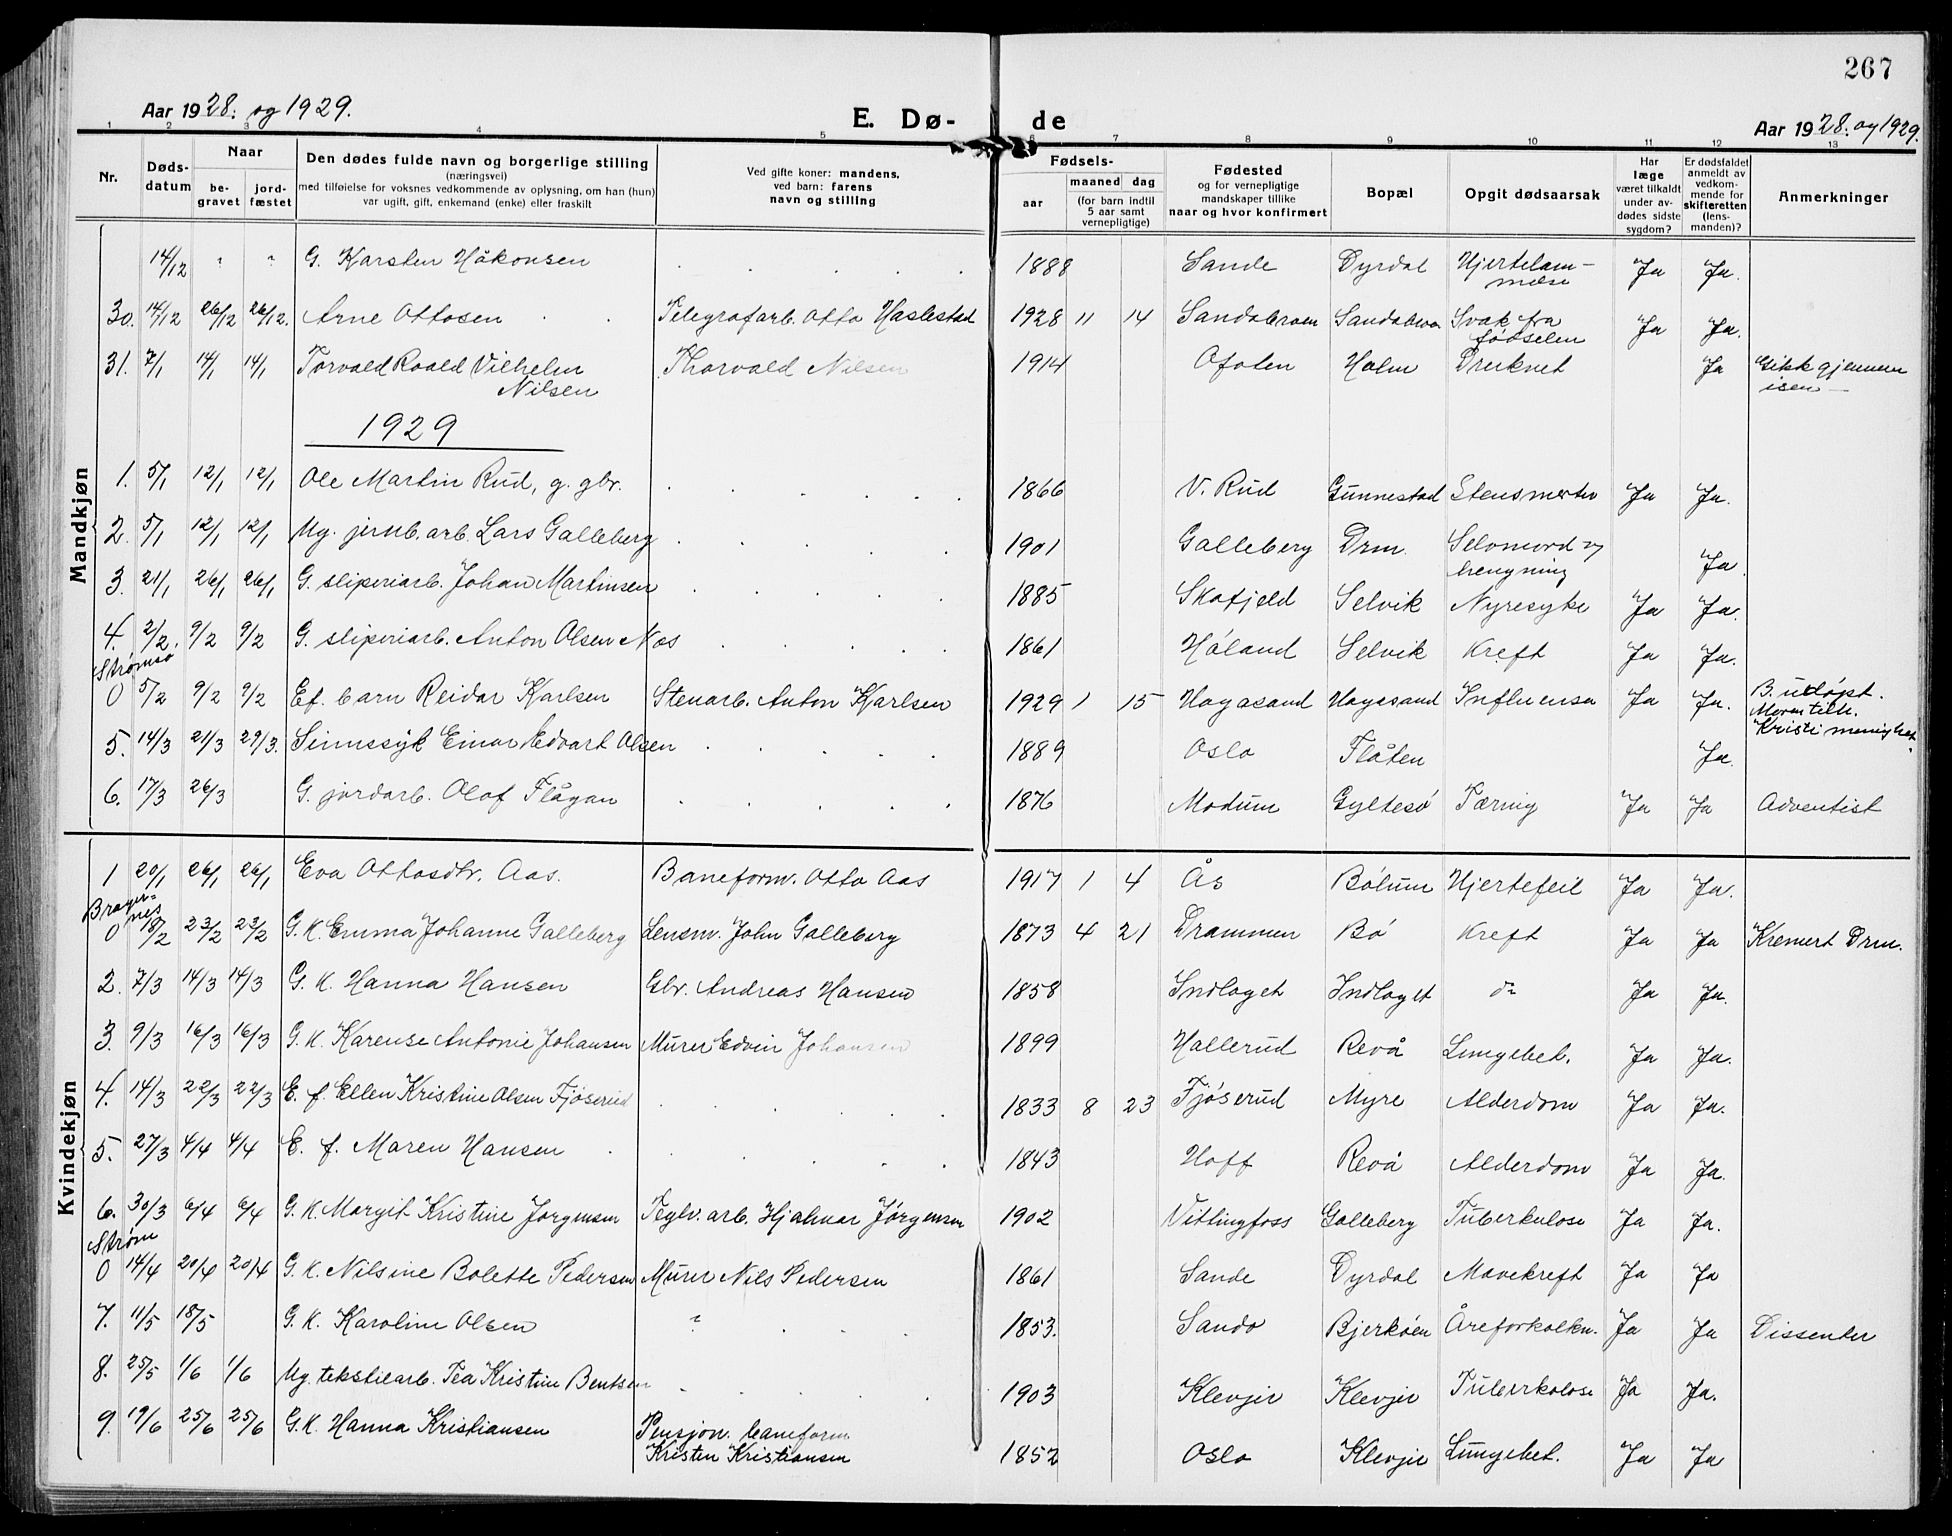 267
Aar 1928. og 1929.
E. Dø-
de
Aar 1928. og 1929.
1 2 3 4 5 6 7 8 9 10 11 12 13
Nr. Døds-datum Naar be-gravet jord-fæstet Den dødes fulde navn og borgerlige stilling (næringsvei) med tilføielse for voksnes vedkommende av oplysning, om han (hun) var ugift, gift, enkemand (enke) eller fraskilt Ved gifte koner: mandens, ved barn: farens navn og stilling Fødsels- aar maaned dag (for barn indtil 5 aar samt vernepligtige) Fødested og for vernepligtige mandskaper tillike naar og hvor konfirmert Bopæl Opgit dødsaarsak Har læge været tilkaldt under av-dødes sidste sygdom? Er dødsfaldet anmeldt av vedkom-mende for skifteretten (lens-manden)? Anmerkninger
Mandkjøn
14/12 " " G. Karsten Håkonsen 1888 Sande Dyrdal Hjertelam-melse Ja Ja.
30. 14/12 26/12 26/12. Arne Ottosen Telegrafarb. Otto Haslestad 1928 11 14 Sandebroen Sandebroen Svak fra fødselen Ja Ja.
31. 7/1 14/1 14/1 Torvald Roald Vilhelm Nilsen Thorvald Nilsen 1914 Ofoten Holm Druknet Ja Gikk gjennem isen
1929
1. 5/1 12/1 12/1 Ole Martin Rud, g. gbr. 1866 V. Rud Gunnestad Stensmerter Ja Ja.
2. 5/1 12/1 12/1 Ug. jernb. arb. Lars Galleberg 1901 Galleberg Drm. Selvmord v/ hengning Ja.
3. 21/1 26/1 26/1 G. sliperiarb. Johan Martinsen 1885 Skafjeld Selvik Nyresyke Ja Ja.
4. 2/2. 9/2 9/2 G. sliperiarb. Anton Olsen Nos 1861 Høland Selvik Kreft Ja Ja.
Strømsø
0 5/2 9/2 9/2 Ef. barn Reidar Karlsen Stenarb. Anton Karlsen 1929 1 15 Hagasand Hagasand Influensa Ja Ja. B. udøpt. Moren tilh. Kristi menighet.
5. 14/3 21/3 29/3. Sinnssyk Einar Edvart Olsen 1889 Oslo Flåten Ja.
6. 17/3 26/3 G. jordarb. Olaf Flågan 1876 Modum Gyltesø Tæring Ja Ja Adventist
Kvindekjøn
1 20/1 26/1 26/1 Eva Ottosdtr. Aas. Baneform. Otto Aas 1917 1 4 Ås Bølum Hjertefeil Ja Ja.
Brager-nes
0 18/2 23/2 23/2 G. K. Emma Johanne Galleberg Lensm. John Galleberg 1873 4 21 Drammen Bø Kreft Ja Ja Kremert Drm.
2. 7/3 14/3 14/3 G. K. Hanna Hansen Gbr. Andreas Hansen 1858 Indlaget Indlaget do Ja Ja.
3. 9/3 16/3 16/3 G. K. Karense Antonie Johansen Murer Edvin Johansen 1899 Hallerud Revå Lungebet. Ja Ja.
4. 14/3 22/3 22/3 E. f. Ellen Kristine Olsen Fjøserud 1833 8 23 Fjøserud Myre Alderdom Ja Ja.
5. 27/3 4/4 4/4 E. f. Maren Hansen 1843 Hoff Revå Alderdom Ja Ja.
6. 30/3 6/4 6/4 G. K. Margit Kristine Jørgensen Teglv. arb. Hjalmar Jørgensen 1902 Vittingfoss Galleberg Tuberkulose Ja Ja.
Strøm
0 14/4 20/4 20/4 G. K. Nilsine Bolette Pedersen Murer Nils Pedersen 1861 Sande Dyrdal Mavekreft Ja Ja
7. 11/5 18/5 G. K. Karoline Olsen ? 1853. Sande Bjerkøen Åreforkalkn. Ja Ja Dissenter
8. 25/5 1/6 1/6 Ug. tekstilarb. Tea Kristine Bentsen 1903 Klevjer Klevjer Tuberkulose Ja Ja.
9. 19/6 25/6 25/6 G. K. Hanna Kristiansen Pensjon. baneform. Kristen Kristiansen 1852 Oslo Klevjer Lungebet. Ja Ja